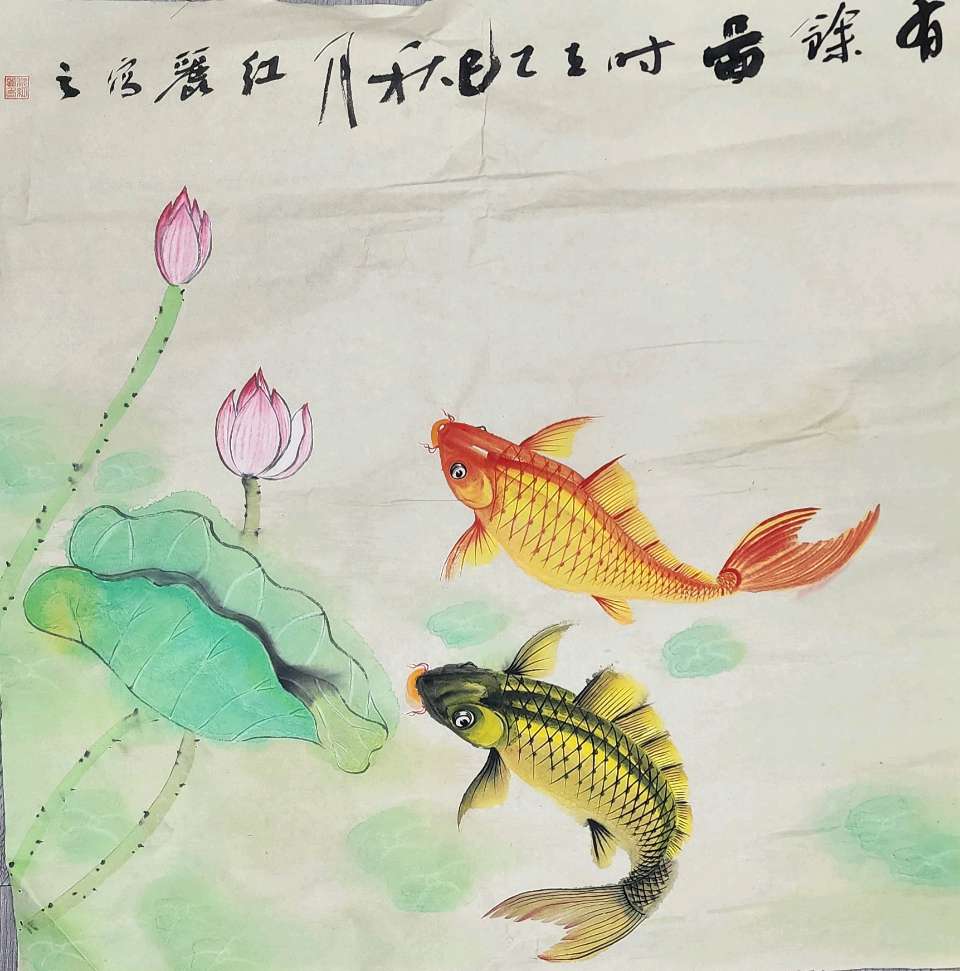 有餘圖时在乙巳秋月红麗寫之